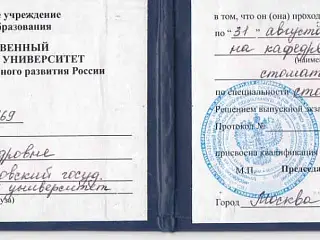 е учреждение
бразования
ВЕННЫЙ
УНИВЕРСИТЕТ
ного развития России
69
дровне
овский госуд.
университет
в том, что он (она) проход
по "31" август
на кафедр
(наимен
стомат
по специальности сто
Решением выпускной экза
Протокол №
присвоена квалификация
Председа
М.П.
Город Москва